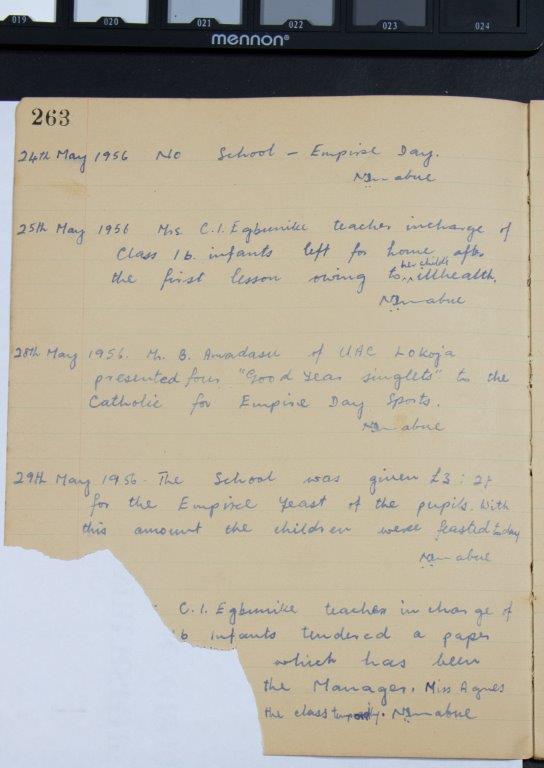 019 020 021 022 023 024
mennon®
263
24th May 1956 No School – Empire Day.
25th May 1956 Mrs C.I. Egbunike teacher incharge of
Class 1b. infants left for home after
her child's
the first lesson owing to illhealth.
28th May 1956. Mr. B. Awadasu of UAC Lokoja
presented four "Good Year singlets" to the
Catholic for Empire Day Sports.
29th May 1956. The School was given £3:2/
for the Empire feast of the pupils. With
this amount the children were feasted today
C.I. Egbunike teacher in charge of
1b infants tendered a paper
which has been
the Manager. Miss Agnes
the class